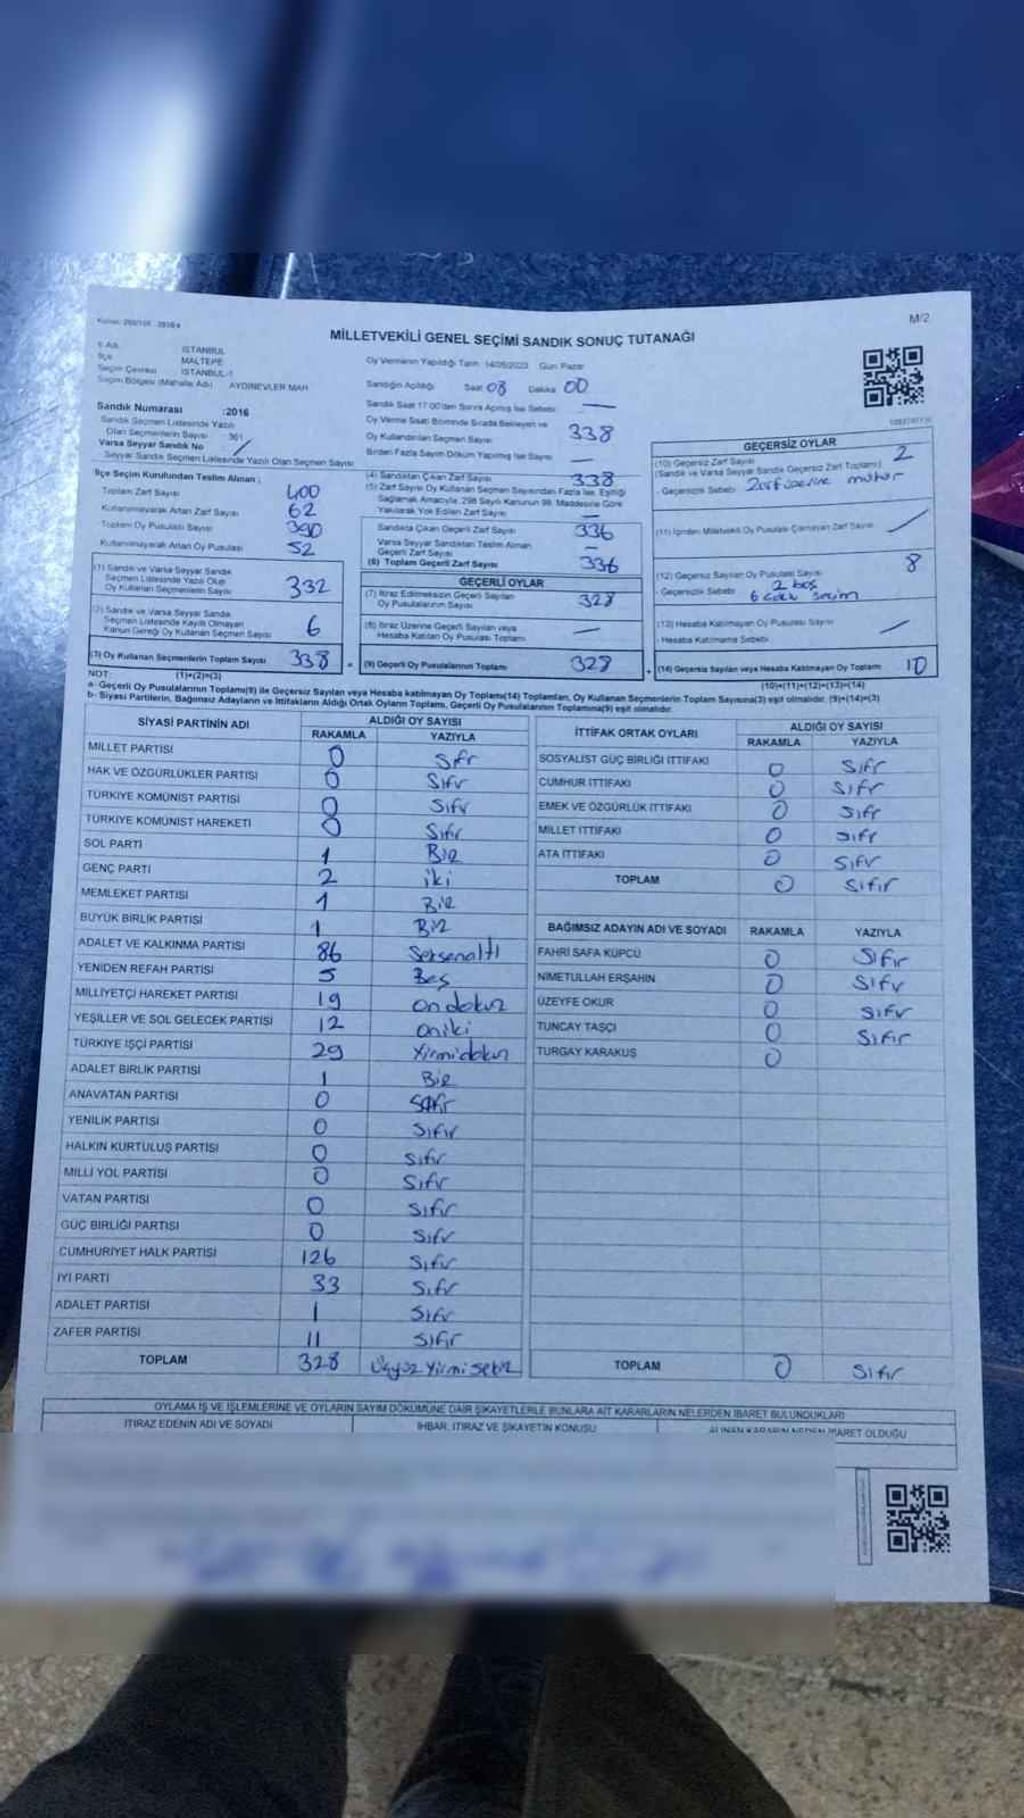 M/2
MİLLETVEKİLİ GENEL SEÇİMİ SANDIK SONUÇ TUTANAĞI
İSTANBUL
İlçe MALTEPE
Seçim Çevresi İSTANBUL-1
Seçim Bölgesi (Mahalle Adı) AYDINEVLER MAH
Sandık Numarası :2016
Sandık Seçmen Listesinde Yazılı
Olan Seçmenlerin Sayısı 361
Varsa Seyyar Sandık No
Seyyar Sandık Seçmen Listesinde Yazılı Olan Seçmen Sayısı
Oy Vermenin Yapıldığı Tarih 14/05/2023 Gün Pazar
Sandığın Açıldığı Saat 08 Dakika 00
Sandık Saat 17:00'den Sonra Açılmış İse Sebebi
Oy Verme Saati Bitiminde Sırada Bekleyen ve
Oy Kullandırılan Seçmen Sayısı 338
Birden Fazla Sayım Döküm Yapılmış İse Sayısı
İlçe Seçim Kurulundan Teslim Alınan :
Toplam Zarf Sayısı 400
Kullanılmayarak Artan Zarf Sayısı 62
Toplam Oy Pusulası Sayısı 390
Kullanılmayarak Artan Oy Pusulası 52
(1) Sandık ve Varsa Seyyar Sandık
Seçmen Listesinde Yazılı Olup
Oy Kullanan Seçmenlerin Sayısı 332
(2) Sandık ve Varsa Seyyar Sandık
Seçmen Listesinde Kayıtlı Olmayan
Kanun Gereği Oy Kullanan Seçmen Sayısı 6
(3) Oy Kullanan Seçmenlerin Toplam Sayısı 338
(1)+(2)=(3)
(4) Sandıktan Çıkan Zarf Sayısı 338
(5) Zarf Sayısı Oy Kullanan Seçmen Sayısından Fazla İse, Eşitliği
Sağlamak Amacıyla, 298 Sayılı Kanunun 98. Maddesine Göre
Yakılarak Yok Edilen Zarf Sayısı
Sandıkta Çıkan Geçerli Zarf Sayısı 336
Varsa Seyyar Sandıktan Teslim Alınan
Geçerli Zarf Sayısı
(6) Toplam Geçerli Zarf Sayısı 336
GEÇERLİ OYLAR
(7) İtiraz Edilmeksizin Geçerli Sayılan
Oy Pusulalarının Sayısı 328
(8) İtiraz Üzerine Geçerli Sayılan veya
Hesaba Katılan Oy Pusulası Toplamı
(9) Geçerli Oy Pusulalarının Toplamı 328
GEÇERSİZ OYLAR
(10) Geçersiz Zarf Sayısı 2
(Sandık ve Varsa Seyyar Sandık Geçersiz Zarf Toplamı)
- Geçersizlik Sebebi Zarf üzerine mühür
(11) İçinden Milletvekili Oy Pusulası Çıkmayan Zarf Sayısı
(12) Geçersiz Sayılan Oy Pusulası Sayısı 8
- Geçersizlik Sebebi 2 boş
6 çoklu seçim
(13) Hesaba Katılmayan Oy Pusulası Sayısı
- Hesaba Katılmama Sebebi
(14) Geçersiz Sayılan veya Hesaba Katılmayan Oy Toplamı 10
(10)+(11)+(12)+(13)=(14)
NOT
a- Geçerli Oy Pusulalarının Toplamı(9) ile Geçersiz Sayılan veya Hesaba katılmayan Oy Toplamı(14) Toplamları, Oy Kullanan Seçmenlerin Toplam Sayısına(3) eşit olmalıdır. (9)+(14)=(3)
b- Siyasi Partilerin, Bağımsız Adayların ve İttifakların Aldığı Ortak Oyların Toplamı, Geçerli Oy Pusulalarının Toplamına(9) eşit olmalıdır.
SİYASİ PARTİNİN ADI ALDIĞI OY SAYISI
RAKAMLA YAZIYLA
MİLLET PARTİSİ 0 Sıfır
HAK VE ÖZGÜRLÜKLER PARTİSİ 0 Sıfır
TÜRKİYE KOMÜNİST PARTİSİ 0 Sıfır
TÜRKİYE KOMÜNİST HAREKETİ 0 Sıfır
SOL PARTİ 1 Bir
GENÇ PARTİ 2 iki
MEMLEKET PARTİSİ 1 Bir
BÜYÜK BİRLİK PARTİSİ 1 Bir
ADALET VE KALKINMA PARTİSİ 86 Seksenaltı
YENİDEN REFAH PARTİSİ 5 Beş
MİLLİYETÇİ HAREKET PARTİSİ 19 ondokuz
YEŞİLLER VE SOL GELECEK PARTİSİ 12 oniki
TÜRKİYE İŞÇİ PARTİSİ 29 Yirmidokuz
ADALET BİRLİK PARTİSİ 1 Bir
ANAVATAN PARTİSİ 0 Sıfır
YENİLİK PARTİSİ 0 Sıfır
HALKIN KURTULUŞ PARTİSİ 0 Sıfır
MİLLİ YOL PARTİSİ 0 Sıfır
VATAN PARTİSİ 0 Sıfır
GÜÇ BİRLİĞİ PARTİSİ 0 Sıfır
CUMHURİYET HALK PARTİSİ 126 Sıfır
İYİ PARTİ 33 Sıfır
ADALET PARTİSİ 1 Sıfır
ZAFER PARTİSİ 11 Sıfır
TOPLAM 328 Üçyüz Yirmi sekiz
İTTİFAK ORTAK OYLARI ALDIĞI OY SAYISI
RAKAMLA YAZIYLA
SOSYALİST GÜÇ BİRLİĞİ İTTİFAKI 0 Sıfır
CUMHUR İTTİFAKI 0 Sıfır
EMEK VE ÖZGÜRLÜK İTTİFAKI 0 Sıfır
MİLLET İTTİFAKI 0 Sıfır
ATA İTTİFAKI 0 Sıfır
TOPLAM 0 Sıfır
BAĞIMSIZ ADAYIN ADI VE SOYADI RAKAMLA YAZIYLA
FAHRİ SAFA KÜPCÜ 0 Sıfır
NİMETULLAH ERŞAHİN 0 Sıfır
ÜZEYFE OKUR 0 Sıfır
TUNCAY TAŞÇI 0 Sıfır
TURGAY KARAKUŞ 0
TOPLAM 0 Sıfır
OYLAMA İŞ VE İŞLEMLERİNE VE OYLARIN SAYIM DÖKÜMÜNE DAİR ŞİKAYETLERLE BUNLARA AİT KARARLARIN NELERDEN İBARET BULUNDUKLARI
İTİRAZ EDENİN ADI VE SOYADI İHBAR, İTİRAZ VE ŞİKAYETİN KONUSU ALINAN KARARIN NEDEN İBARET OLDUĞU